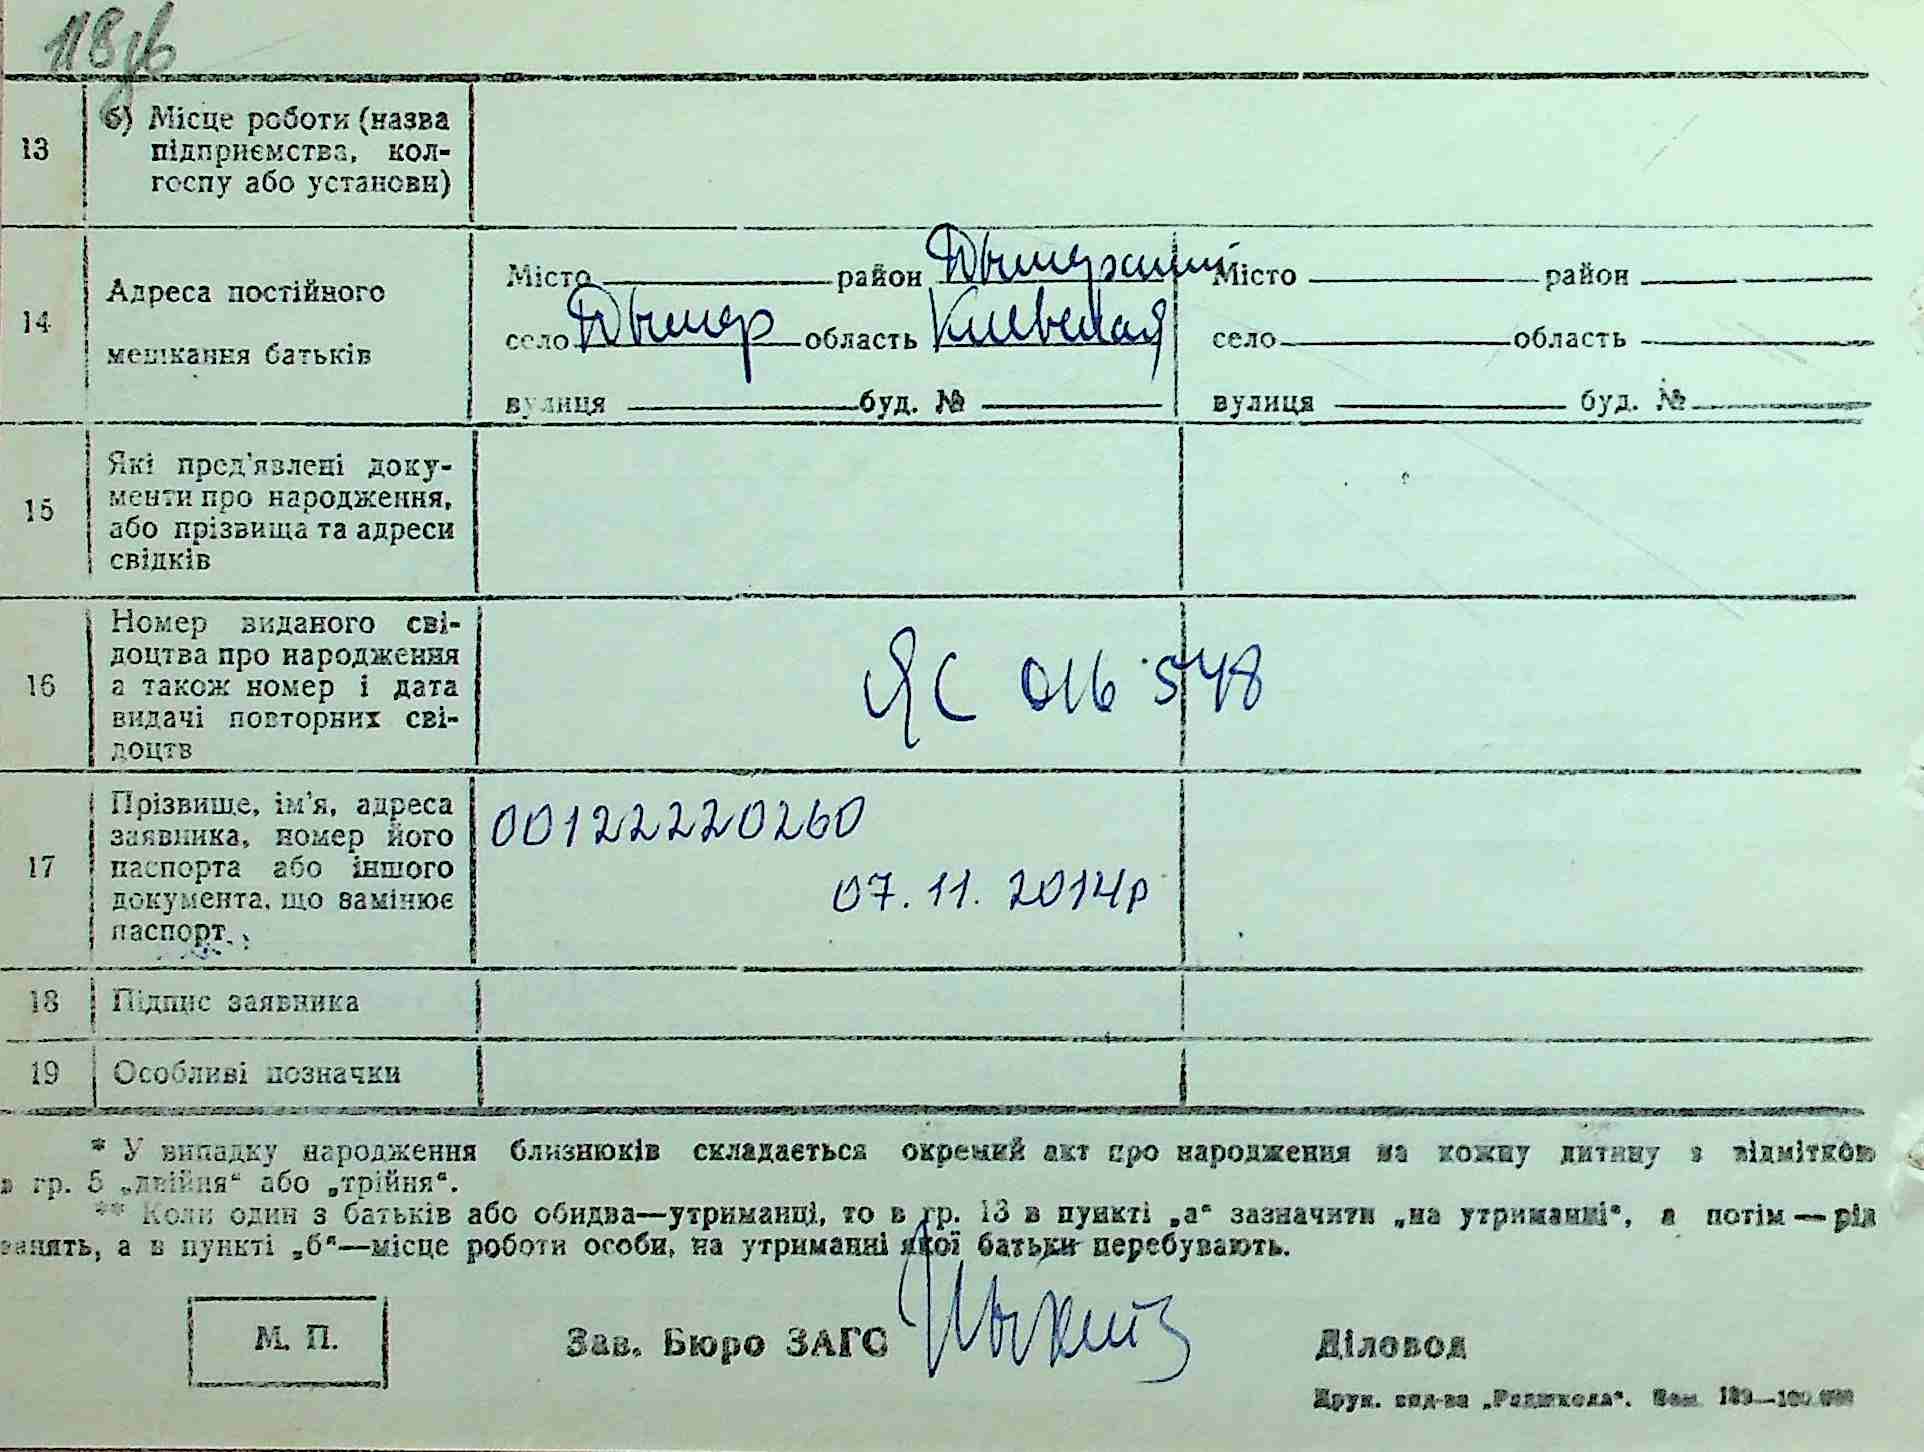 118зв
13
б) Місце роботи (назва
підприємства, кол-
госпу або установи)
14
Адреса постійного
мешкання батьків
Місто район Дымерский
село Дымер область Киевская
вулиця буд. №
Місто район
село область
вулиця буд. №
15
Які пред'явлені доку-
менти про народження,
або прізвища та адреси
свідків
16
Номер виданого сві-
доцтва про народження
а також номер і дата
видачі повторних сві-
доцтв
ЯС 016548
17
Прізвище, ім'я, адреса
заявника, номер його
паспорта або іншого
документа, що замінює
паспорт
00122220260
07.11.2014р
18
Підпис заявника
19
Особливі позначки
* У випадку народження близнюків складається окремий акт про народження на кожну дитину з відміткою
в гр. 5 „двійня“ або „трійня“.
** Коли один з батьків або обидва—утриманці, то в гр. 13 в пункті „а“ зазначити „на утриманні“, а потім—рід
занять, а в пункті „б“—місце роботи особи, на утриманні якої батьки перебувають.
М. П.
Зав. Бюро ЗАГС
Діловод
Друк. вид-ва „Радшкола“. Зам.